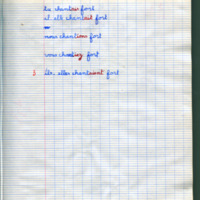 tu chantais fort
il, elle chantait fort
nous chantions fort
vous chantiez fort
5 ils, elles chantaient fort